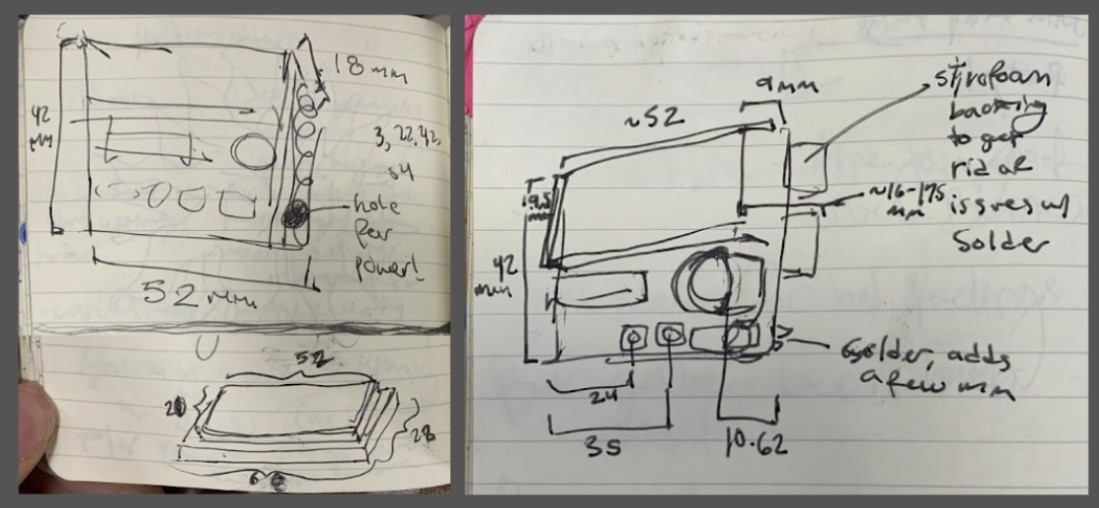 18 mm
42
mm
3, 22.42,
54
hole
for
power!
52 mm
52
28
9mm
~52
styrofoam
backing
to get
rid of
issues w/
solder
~16-17.5
mm
19.5
mm
42
mm
solder, adds
a few mm
24
35
10.62